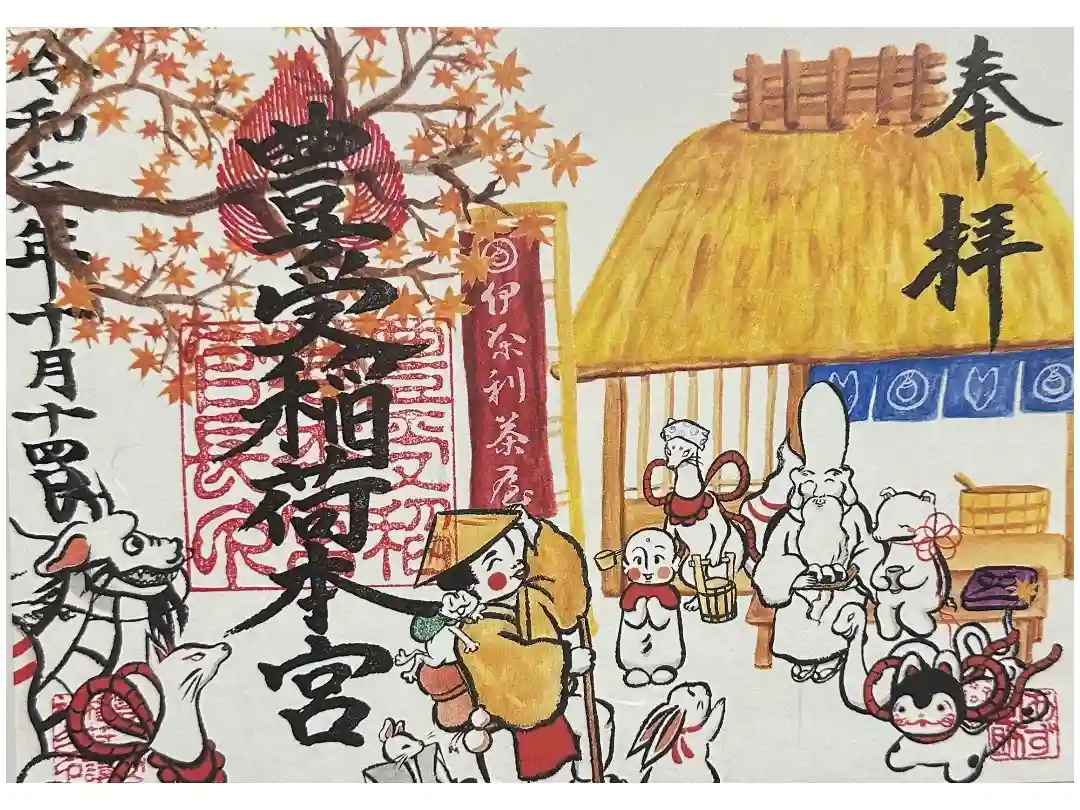 奉拝
伊奈利茶屋
豊受稲荷本宮
令和六年十月十四日